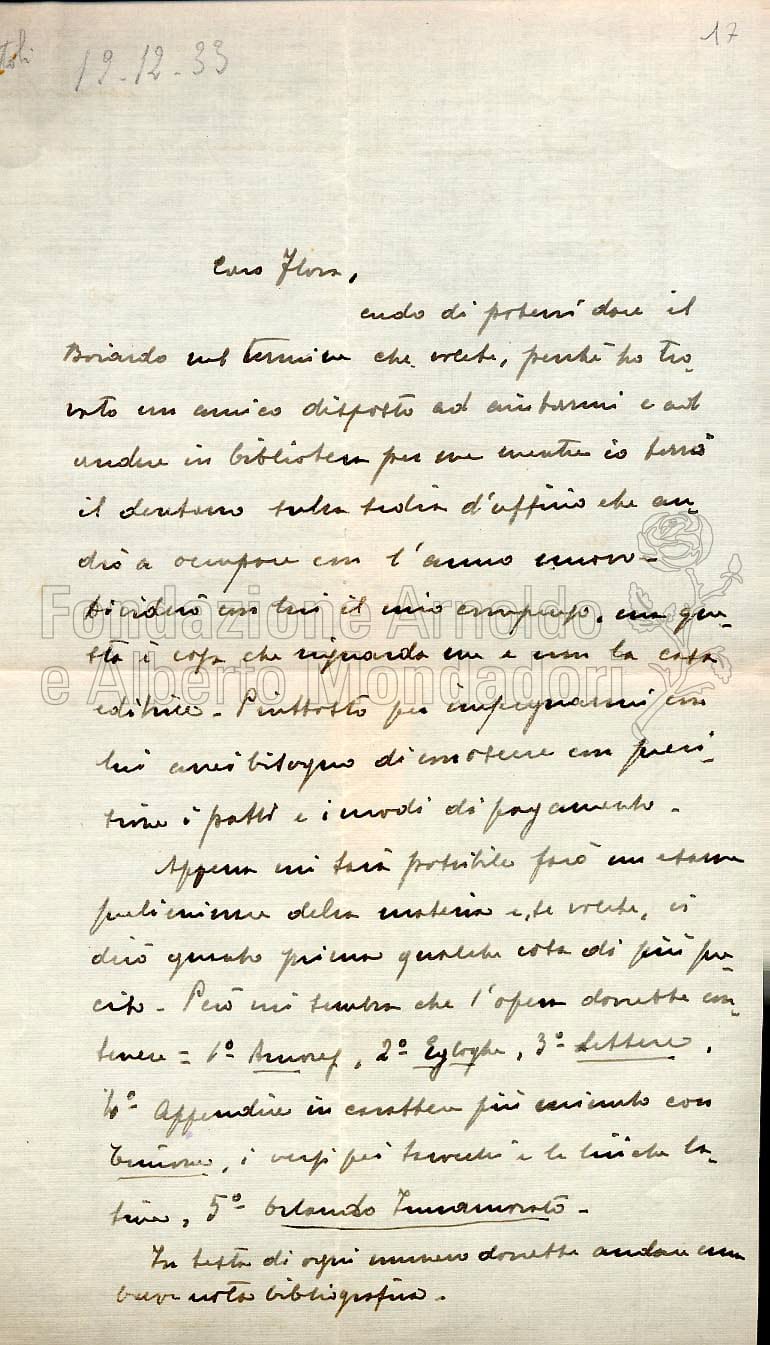 17
19-12-33
Caro Flora,
credo di potervi dare il
Boiardo nel termine che volete, perché ho tro-
vato un amico disposto ad aiutarmi e ad
andare in biblioteca per me mentre io terrò
il deretano sulla sedia d'ufficio che an-
drò a occupare con l'anno nuovo -
Dividerò con lui il mio compenso, ma que-
sta è cosa che riguarda me e non la casa
editrice - Piuttosto per impegnarmi con
lui avrei bisogno di conoscere con preci-
sione i patti e i modi di pagamento -
Appena mi sarà possibile farò un esame
preliminare della materia e, se volete, vi
dirò quanto prima qualche cosa di più pre-
ciso - Però mi sembra che l'opera dovrebbe con-
tenere = 1º Amores, 2º Egloghe, 3º Lettere,
4º Appendice in carattere più minuto con
Timone, i versi pei tarocchi e le liriche la-
tine, 5º Orlando Innamorato -
In testa di ogni numero dovrebbe andare una
breve nota bibliografica -
Fondazione Arnoldo
e Alberto Mondadori